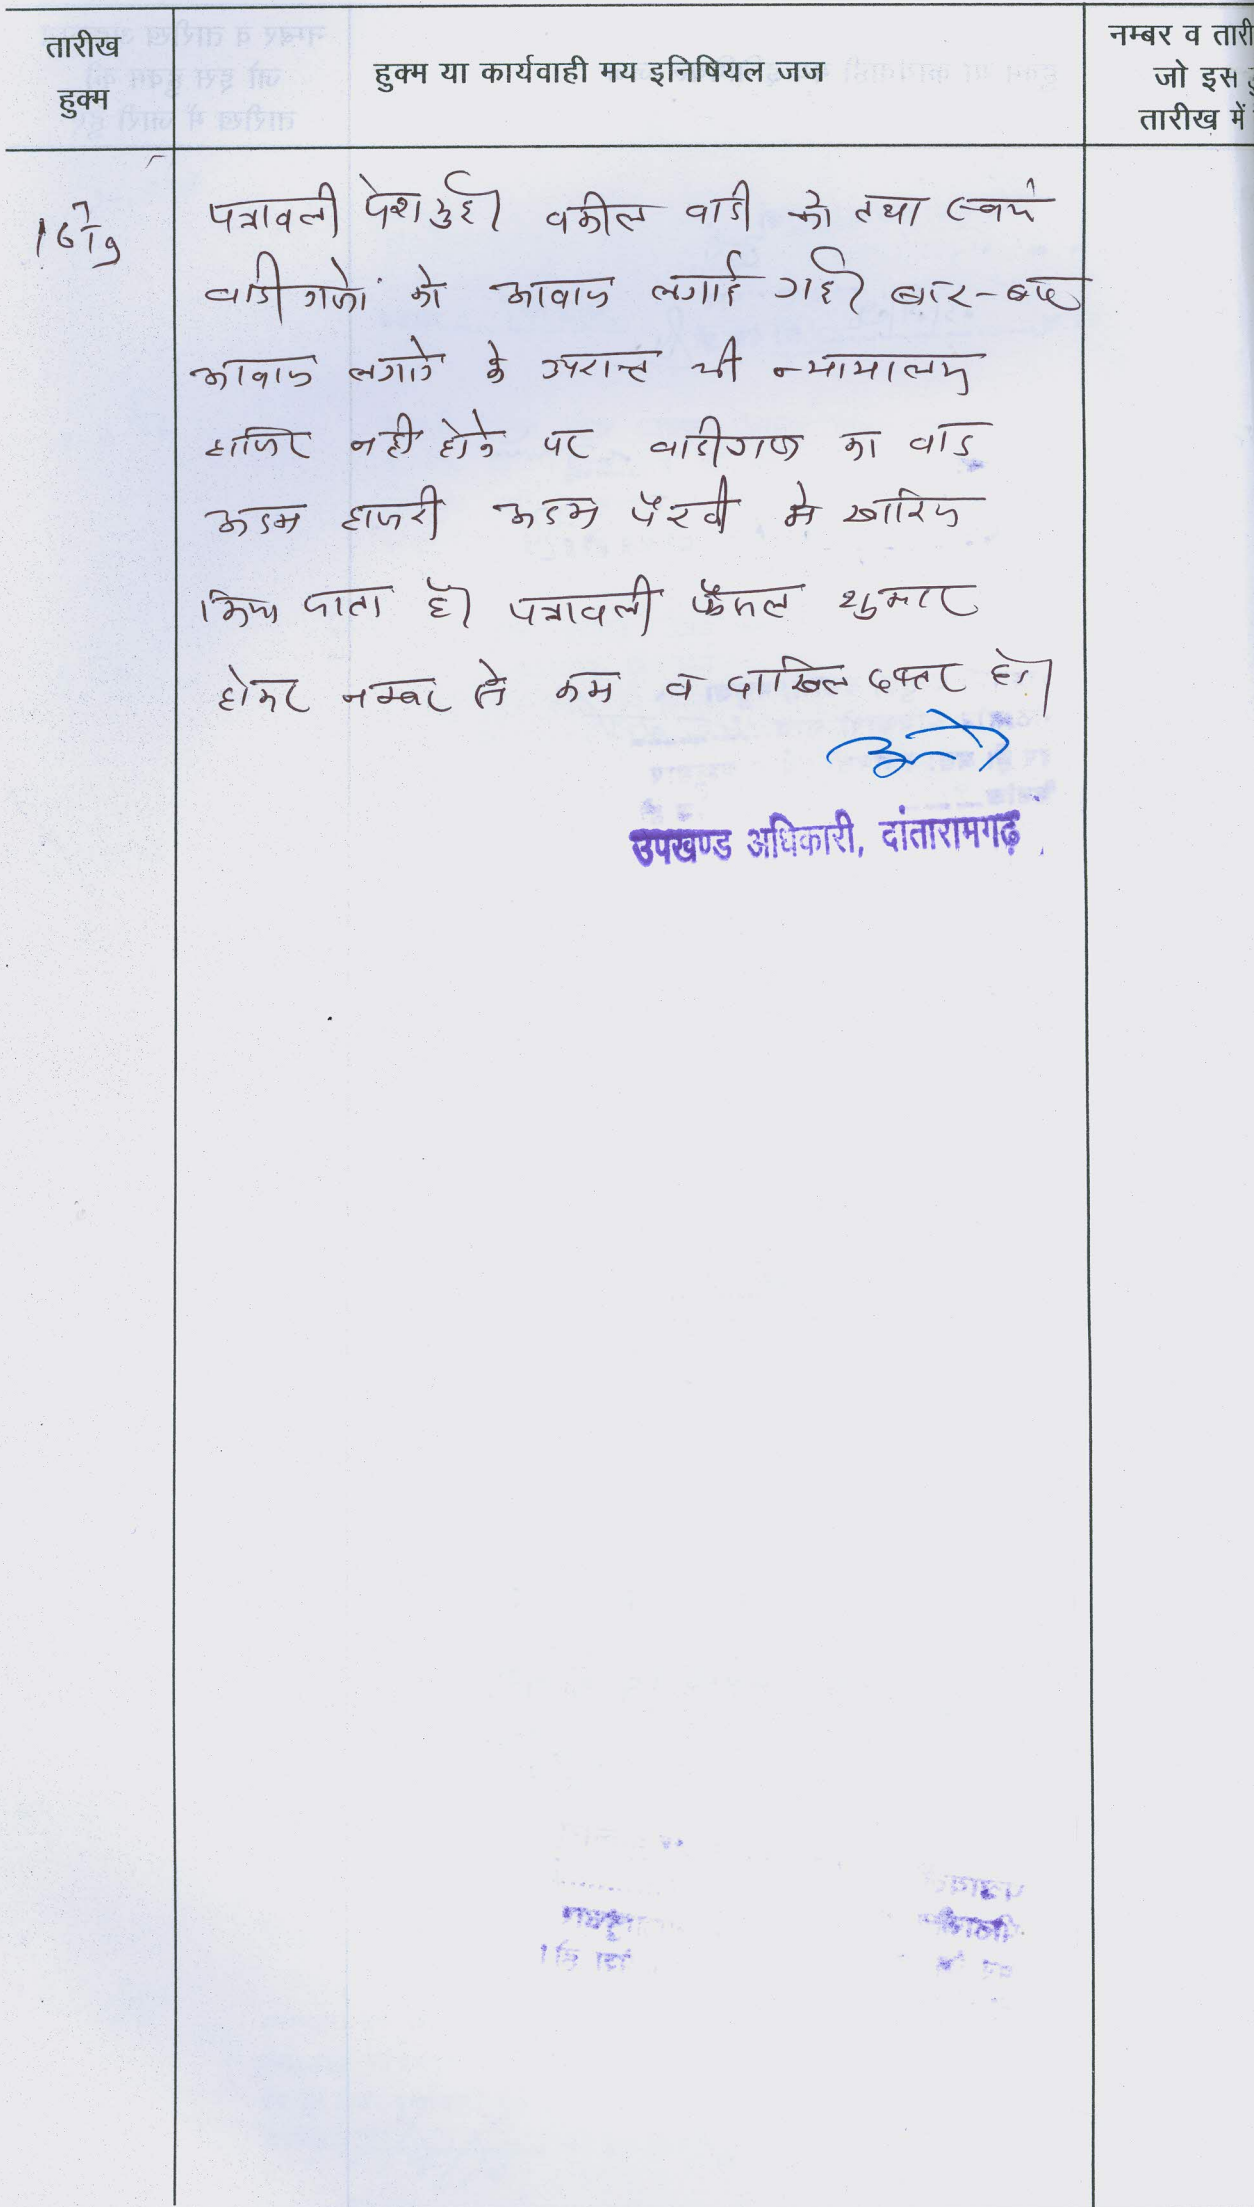 तारीख
हुक्म
हुक्म या कार्यवाही मय इनिषियल जज
नम्बर व तारी
जो इस
तारीख में
पत्रावली पेश हुई। वकील वादी को तथा स्वयं
वादीगणों को आवाज लगाई गई। बार-बार
आवाज लगाने के उपरान्त भी न्यायालय
हाजिर नही होने पर वादीगण का वाद
अदम हाजरी अदम पैरवी मे खारिज
किया जाता है। पत्रावली फैसल शुमार
होकर नम्बर से कम व दाखिल दफ्तर हो।
उपखण्ड अधिकारी, दांतारामगढ़